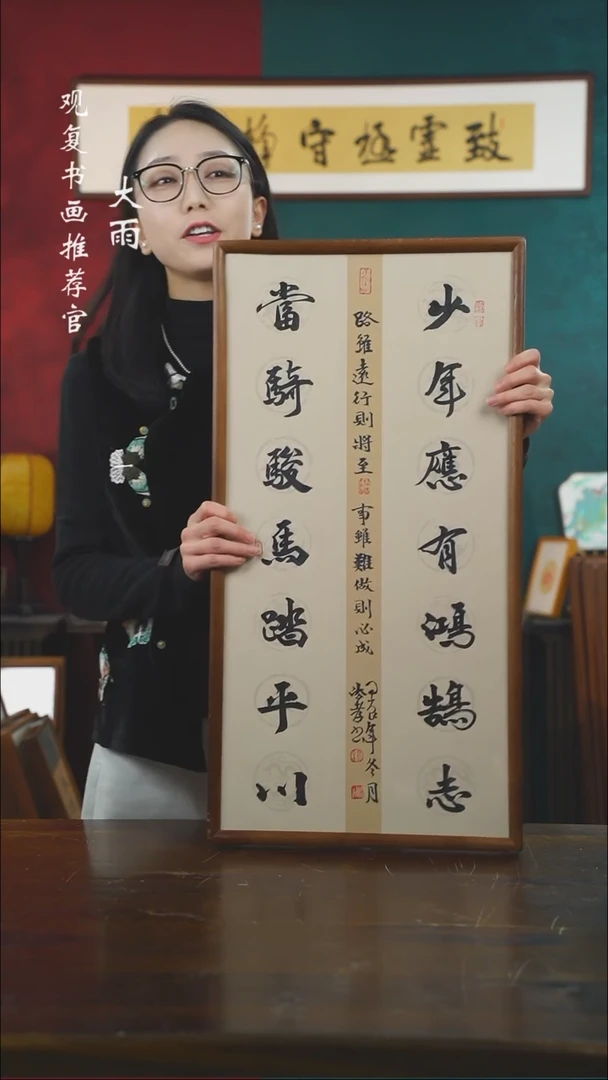 观复书画推荐官
大雨
致虚极守静
少年應有鴻鵠志
路雖遠行則將至
事雖難做則必成
甲辰年冬月
當騎駿馬踏平川